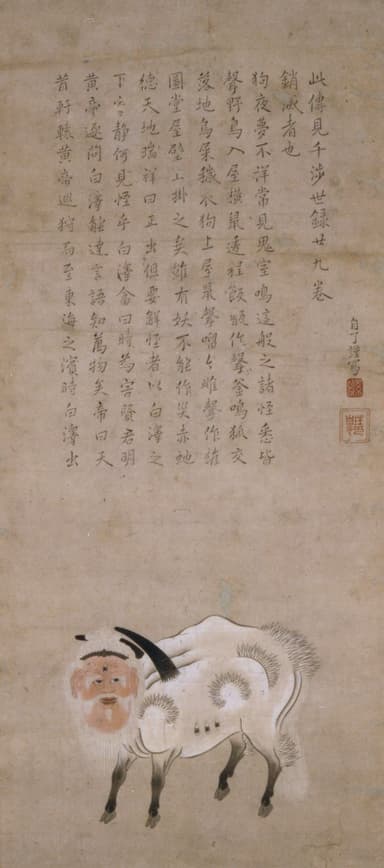 昔軒轅黄帝巡狩而至東海之濱時白澤出
黄帝遂問白澤能達言語知萬物矣帝曰天
下之静何見怪乎白澤答曰時為害賢君明
德天地瑞祥曰正出但要解怪者以白澤之
圖堂屋壁上掛之矣雖有妖不能作災赤蛇
落地烏屎穢衣狗上屋鼠聲々雌聲作雄
聲野鳥入屋横鼠遶程飯甑作聲釜鳴狐交
狗夜夢不祥常見鬼空鳴這般之諸怪悉皆
銷滅者也
此傳見于涉世録廿九卷
自了謹寫